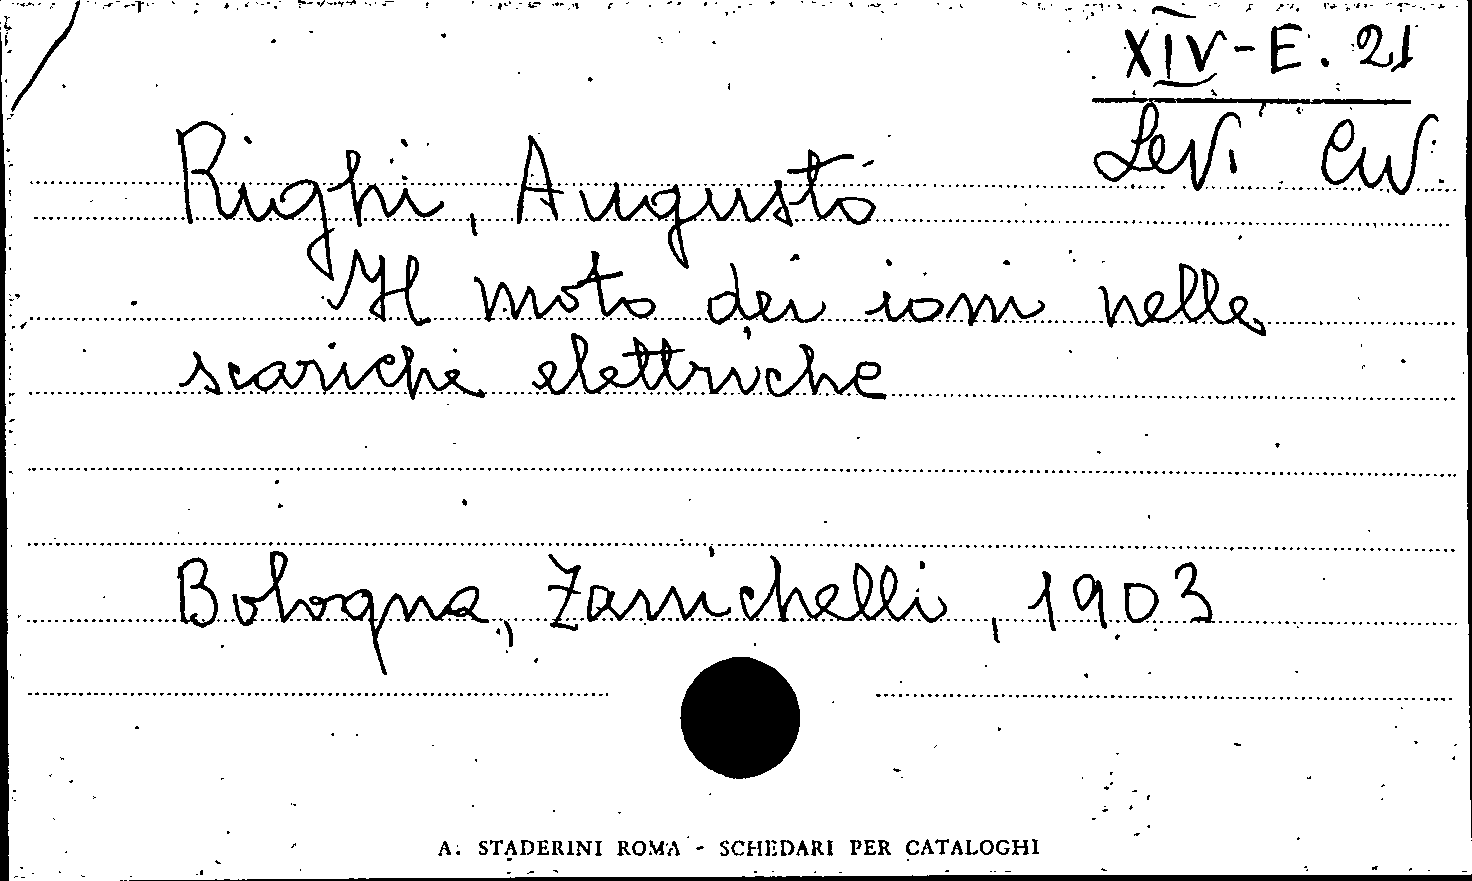 XIV-E. 21
Levi Civ.
Righi, Augusto
Il moto dei ioni nelle
scariche elettriche
Bologna, Zanichelli, 1903
A. STADERINI ROMA - SCHEDARI PER CATALOGHI